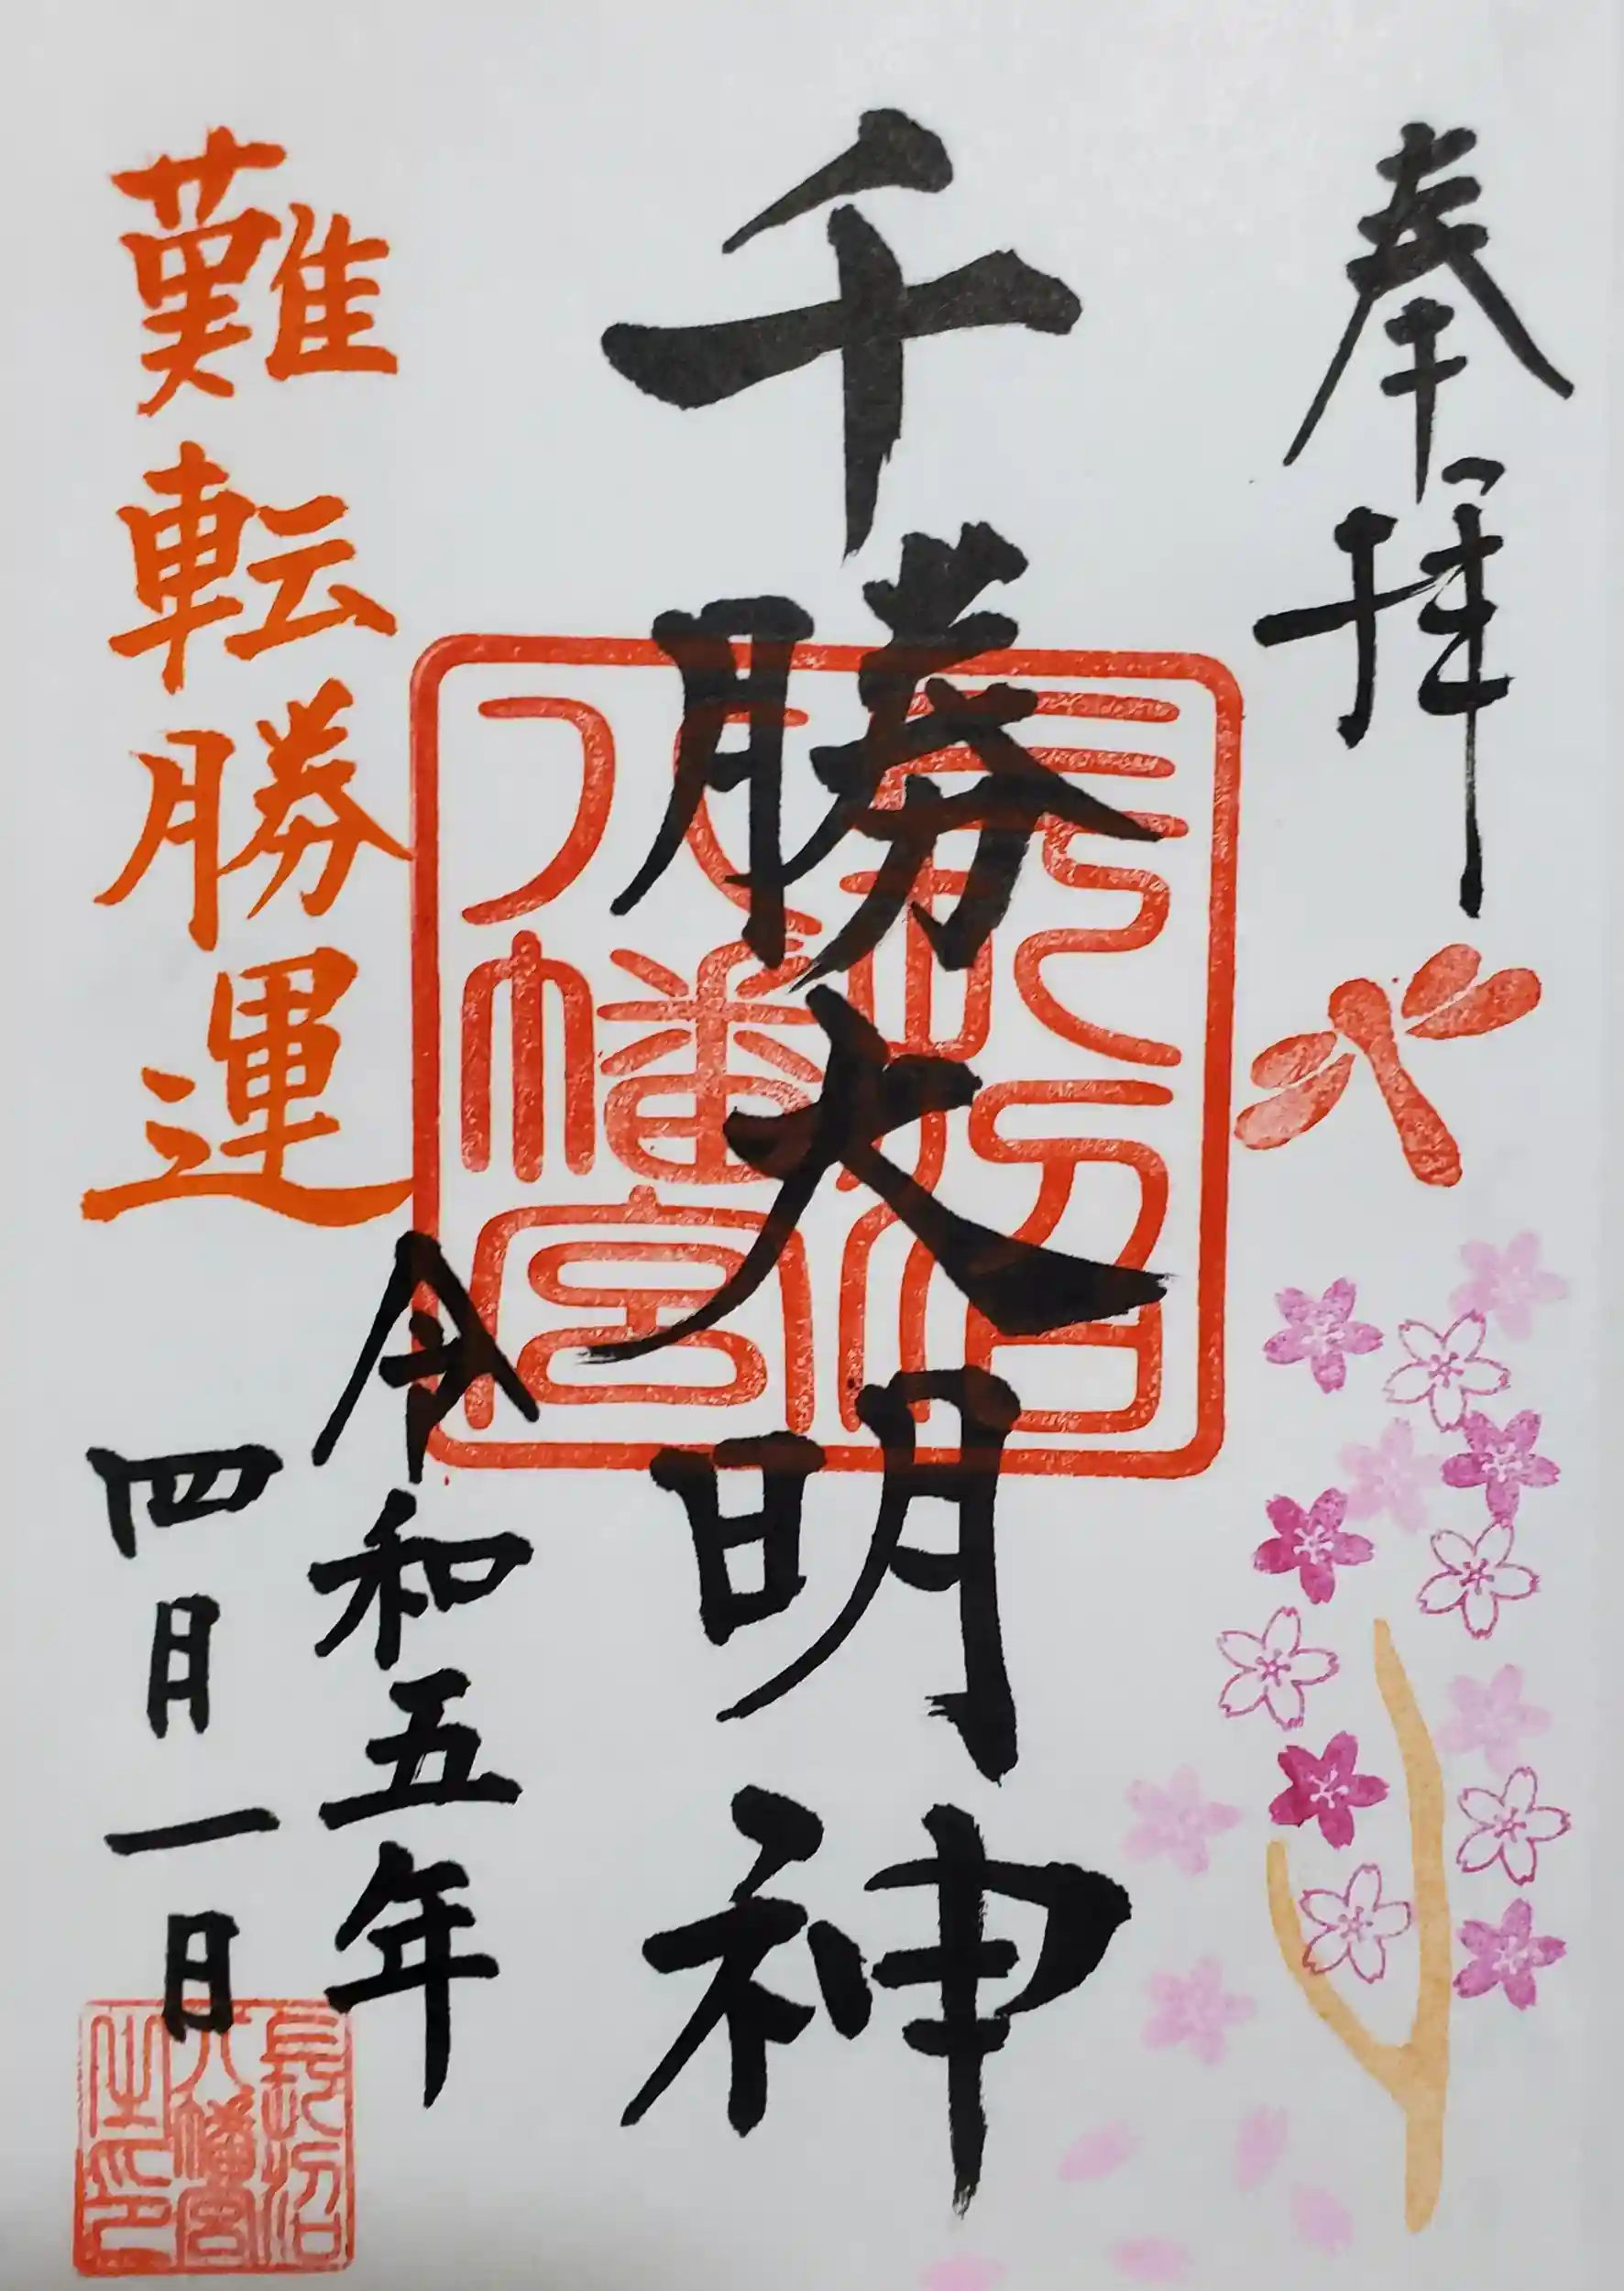 奉拝
千勝大明神
長沼八幡宮
難転勝運
令和五年
四月一日
長沼八幡宮之印